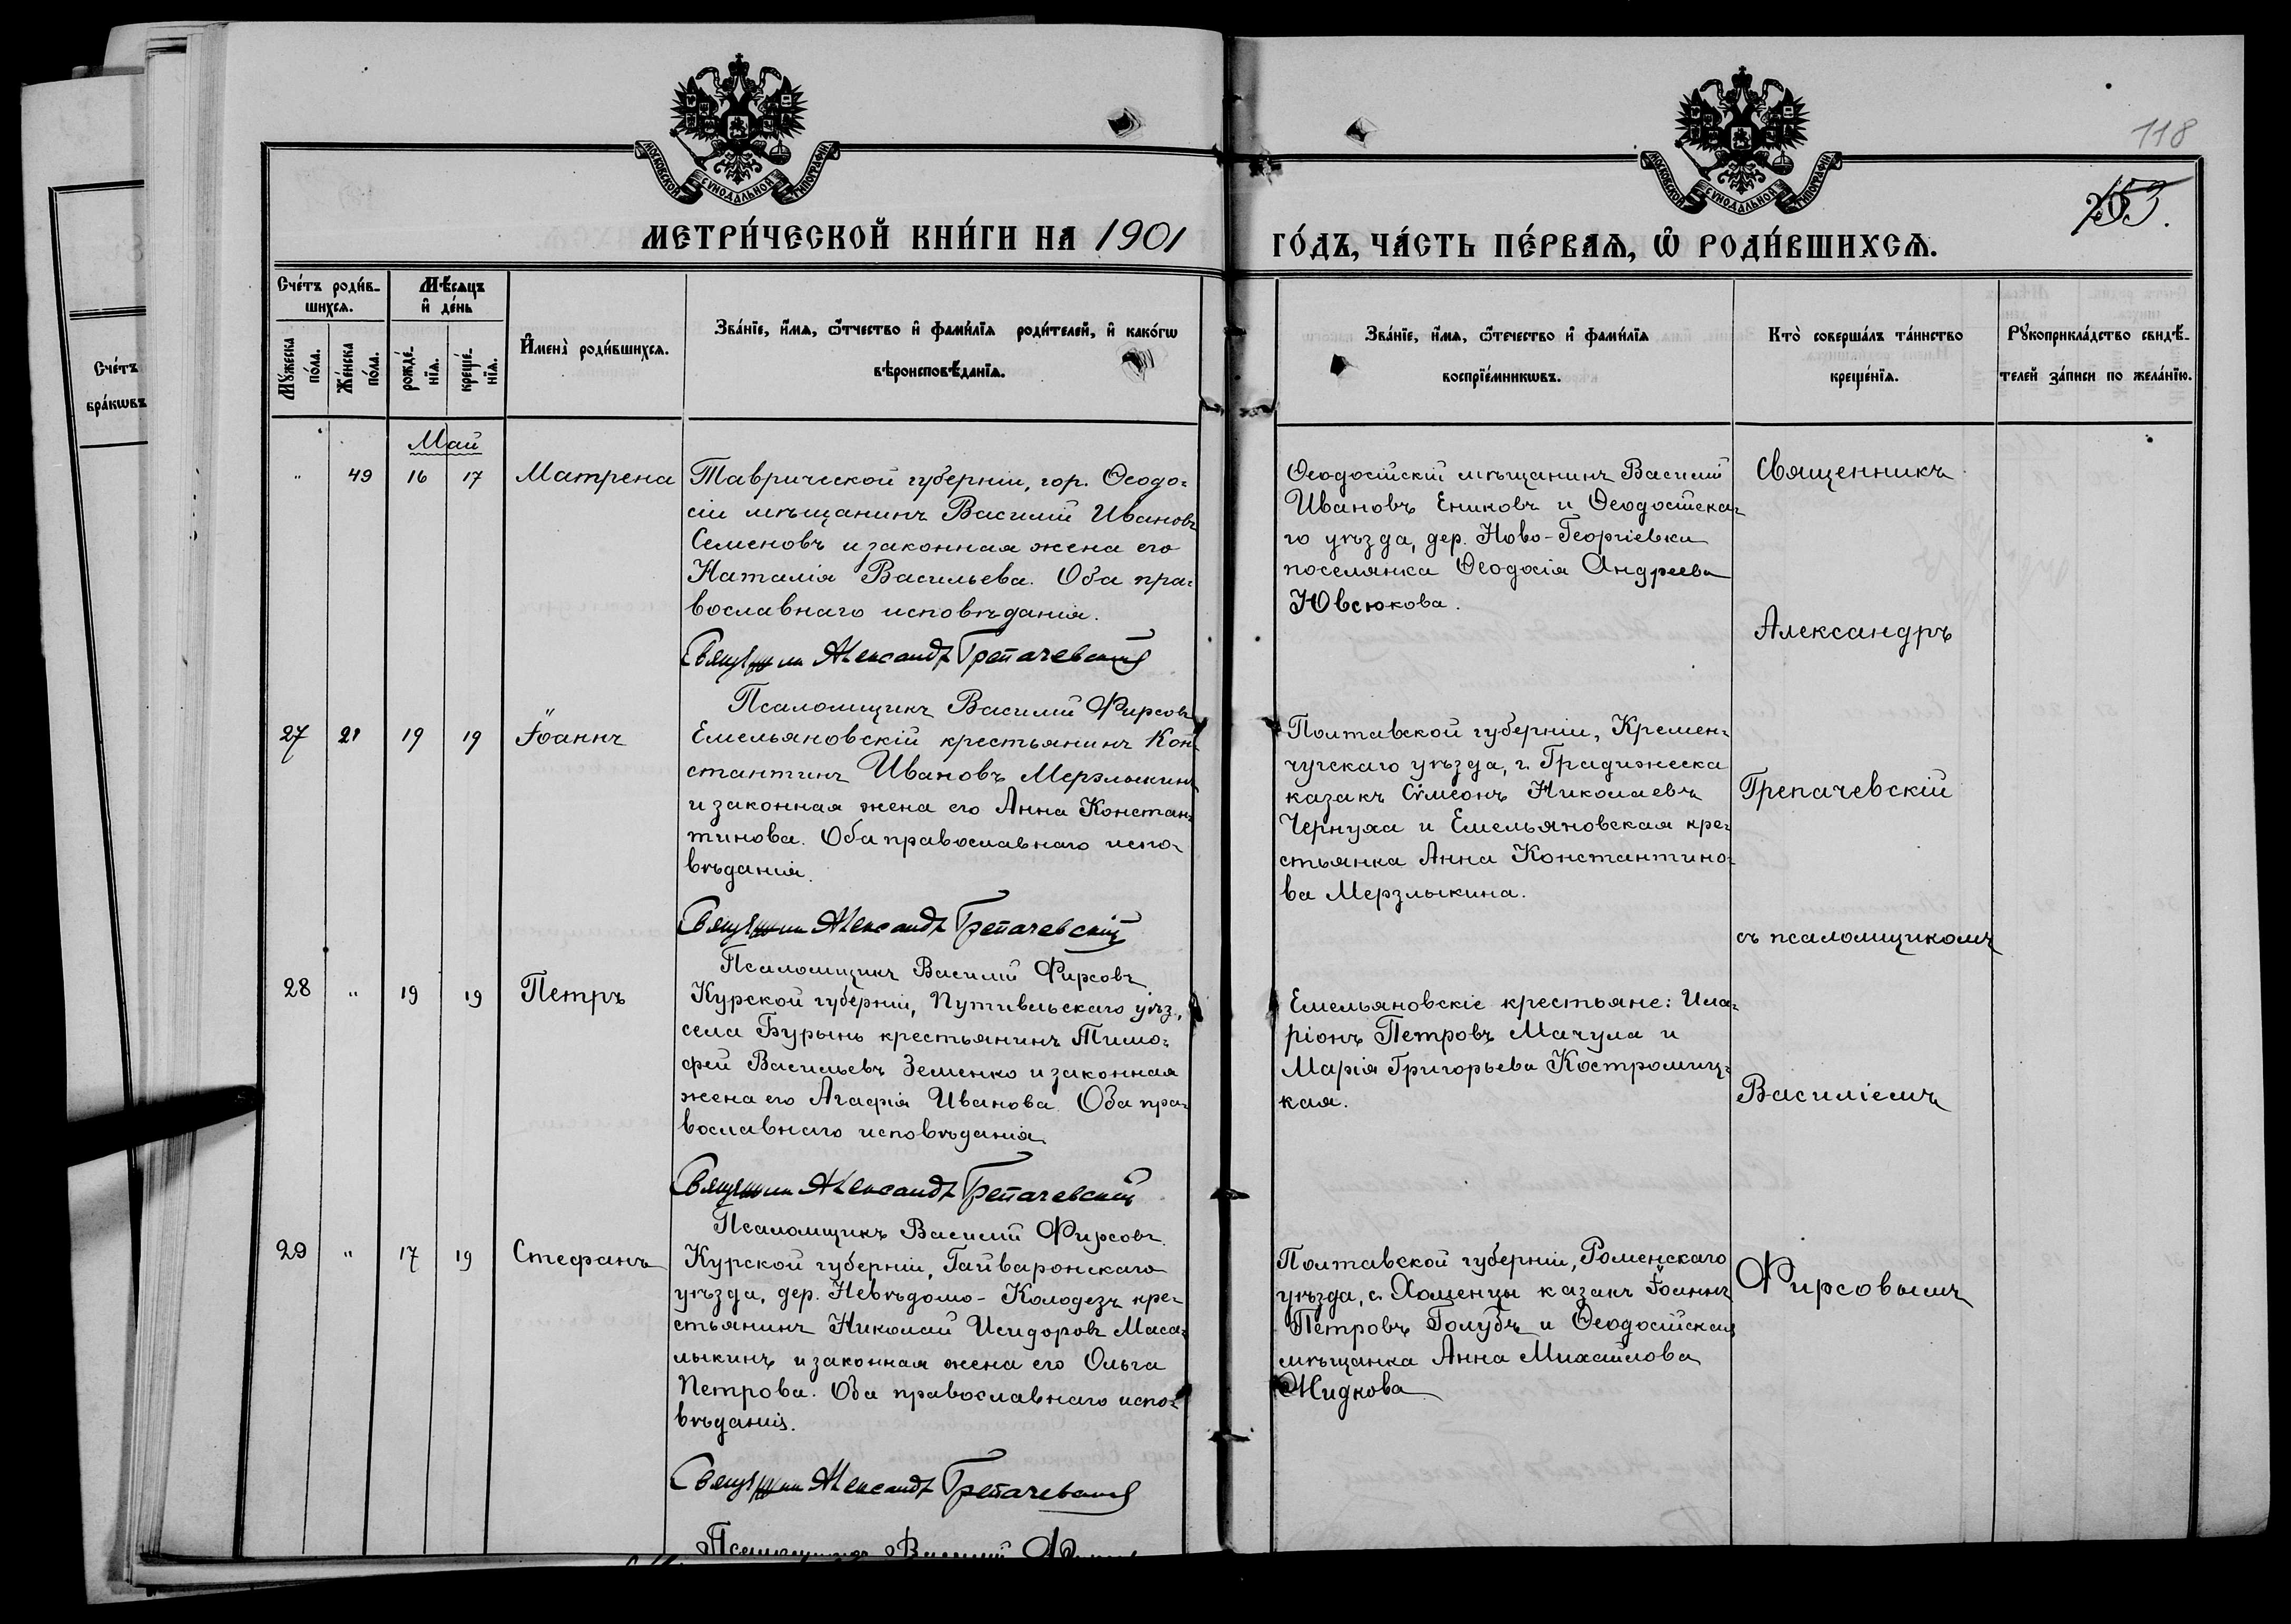 МОСКОВСКОЙ СѴНОДАЛЬНОЙ ТИПОГРАФІИ
МОСКОВСКОЙ СѴНОДАЛЬНОЙ ТИПОГРАФІИ
118
МЕТРИ́ЧЕСКОЙ КНИ́ГИ НА 1901
ГО́ДЪ, ЧА́СТЬ ПЕ́РВАѦ, Ѡ҆ РОДИ́ВШИХСѦ.
Сче́тъ
бра́кѡвъ
Сче́тъ роди́в-
шихсѧ.
Мѣ́сѧцъ
и҆ де́нь
Мꙋ́жеска
по́ла.
Же́нска
по́ла.
рожде́-
нїѧ.
креще́-
нїѧ.
И҆мена̀ роди́вшихсѧ.
Зва́нїе, и҆́мѧ, ѻ҆́тчество и҆ фами́лїѧ роди́телей, и҆ како́гѡ
вѣроисповѣ́данїѧ.
Зва́нїе, и҆́мѧ, ѻ҆́течество и҆ фами́лїѧ
воспрїе́мникѡвъ.
Кто̀ соверша́лъ та́инство
креще́нїѧ.
Рꙋкоприкла́дство свидѣ́-
телей за́писи по жела́нїю.
Май
„ 49 16 17 Матрена
Таврической губерніи, гор. Ѳеодо-
сіи мѣщанинъ Василій Ивановъ
Семеновъ и законная жена его
Наталія Васильева. Оба пра-
вославнаго исповѣданія.
Александръ Трепачевскій
Псаломщикъ Василій Фирсовъ
Ѳеодосійскій мѣщанинъ Василій
Ивановъ Ениковъ и Ѳеодосійска-
го уѣзда, дер. Ново-Георгіевки
поселянка Ѳеодосія Андреева
Ювсюкова.
Священникъ
Александръ
Трепачевскій
съ псаломщикомъ
Василіемъ
Фирсовымъ
27 19 19 Іоаннъ
Емельяновскій крестьянинъ Кон-
стантинъ Ивановъ Мерзлыкинъ
и законная жена его Анна Констан-
тинова. Оба православнаго испо-
вѣданія.
Александръ Трепачевскій
Псаломщикъ Василій Фирсовъ
Полтавской губерніи, Кремен-
чугскаго уѣзда, г. Градижска
казакъ Сѵмеонъ Николаевъ
Чернуха и Емельяновская кре-
стьянка Анна Константино-
ва Мерзлыкина.
28 „ 19 19 Петръ
Курской губерніи, Путивльскаго уѣз.,
села Бурынь крестьянинъ Тимо-
фей Васильевъ Земенко и законная
жена его Агафія Иванова. Оба пра-
вославнаго исповѣданія
Александръ Трепачевскій
Псаломщикъ Василій Фирсовъ
Емельяновскіе крестьяне: Ила-
ріонъ Петровъ Мачула и
Марія Григорьева Костромиц-
кая.
29 „ 17 19 Стефанъ
Курской губерніи, Гайворонскаго
уѣзда, дер. Невѣдомо-Колодезь кре-
стьянинъ Николай Исидоровъ Маса-
лыкинъ и законная жена его Ольга
Петрова. Оба православнаго испо-
вѣданія.
Александръ Трепачевскій
Псаломщикъ Василій
Полтавской губерніи, Роменскаго
уѣзда, с. Хоменцы казакъ Іоаннъ
Петровъ Голубъ и Ѳеодосійская
мѣщанка Анна Михайлова
Жидкова